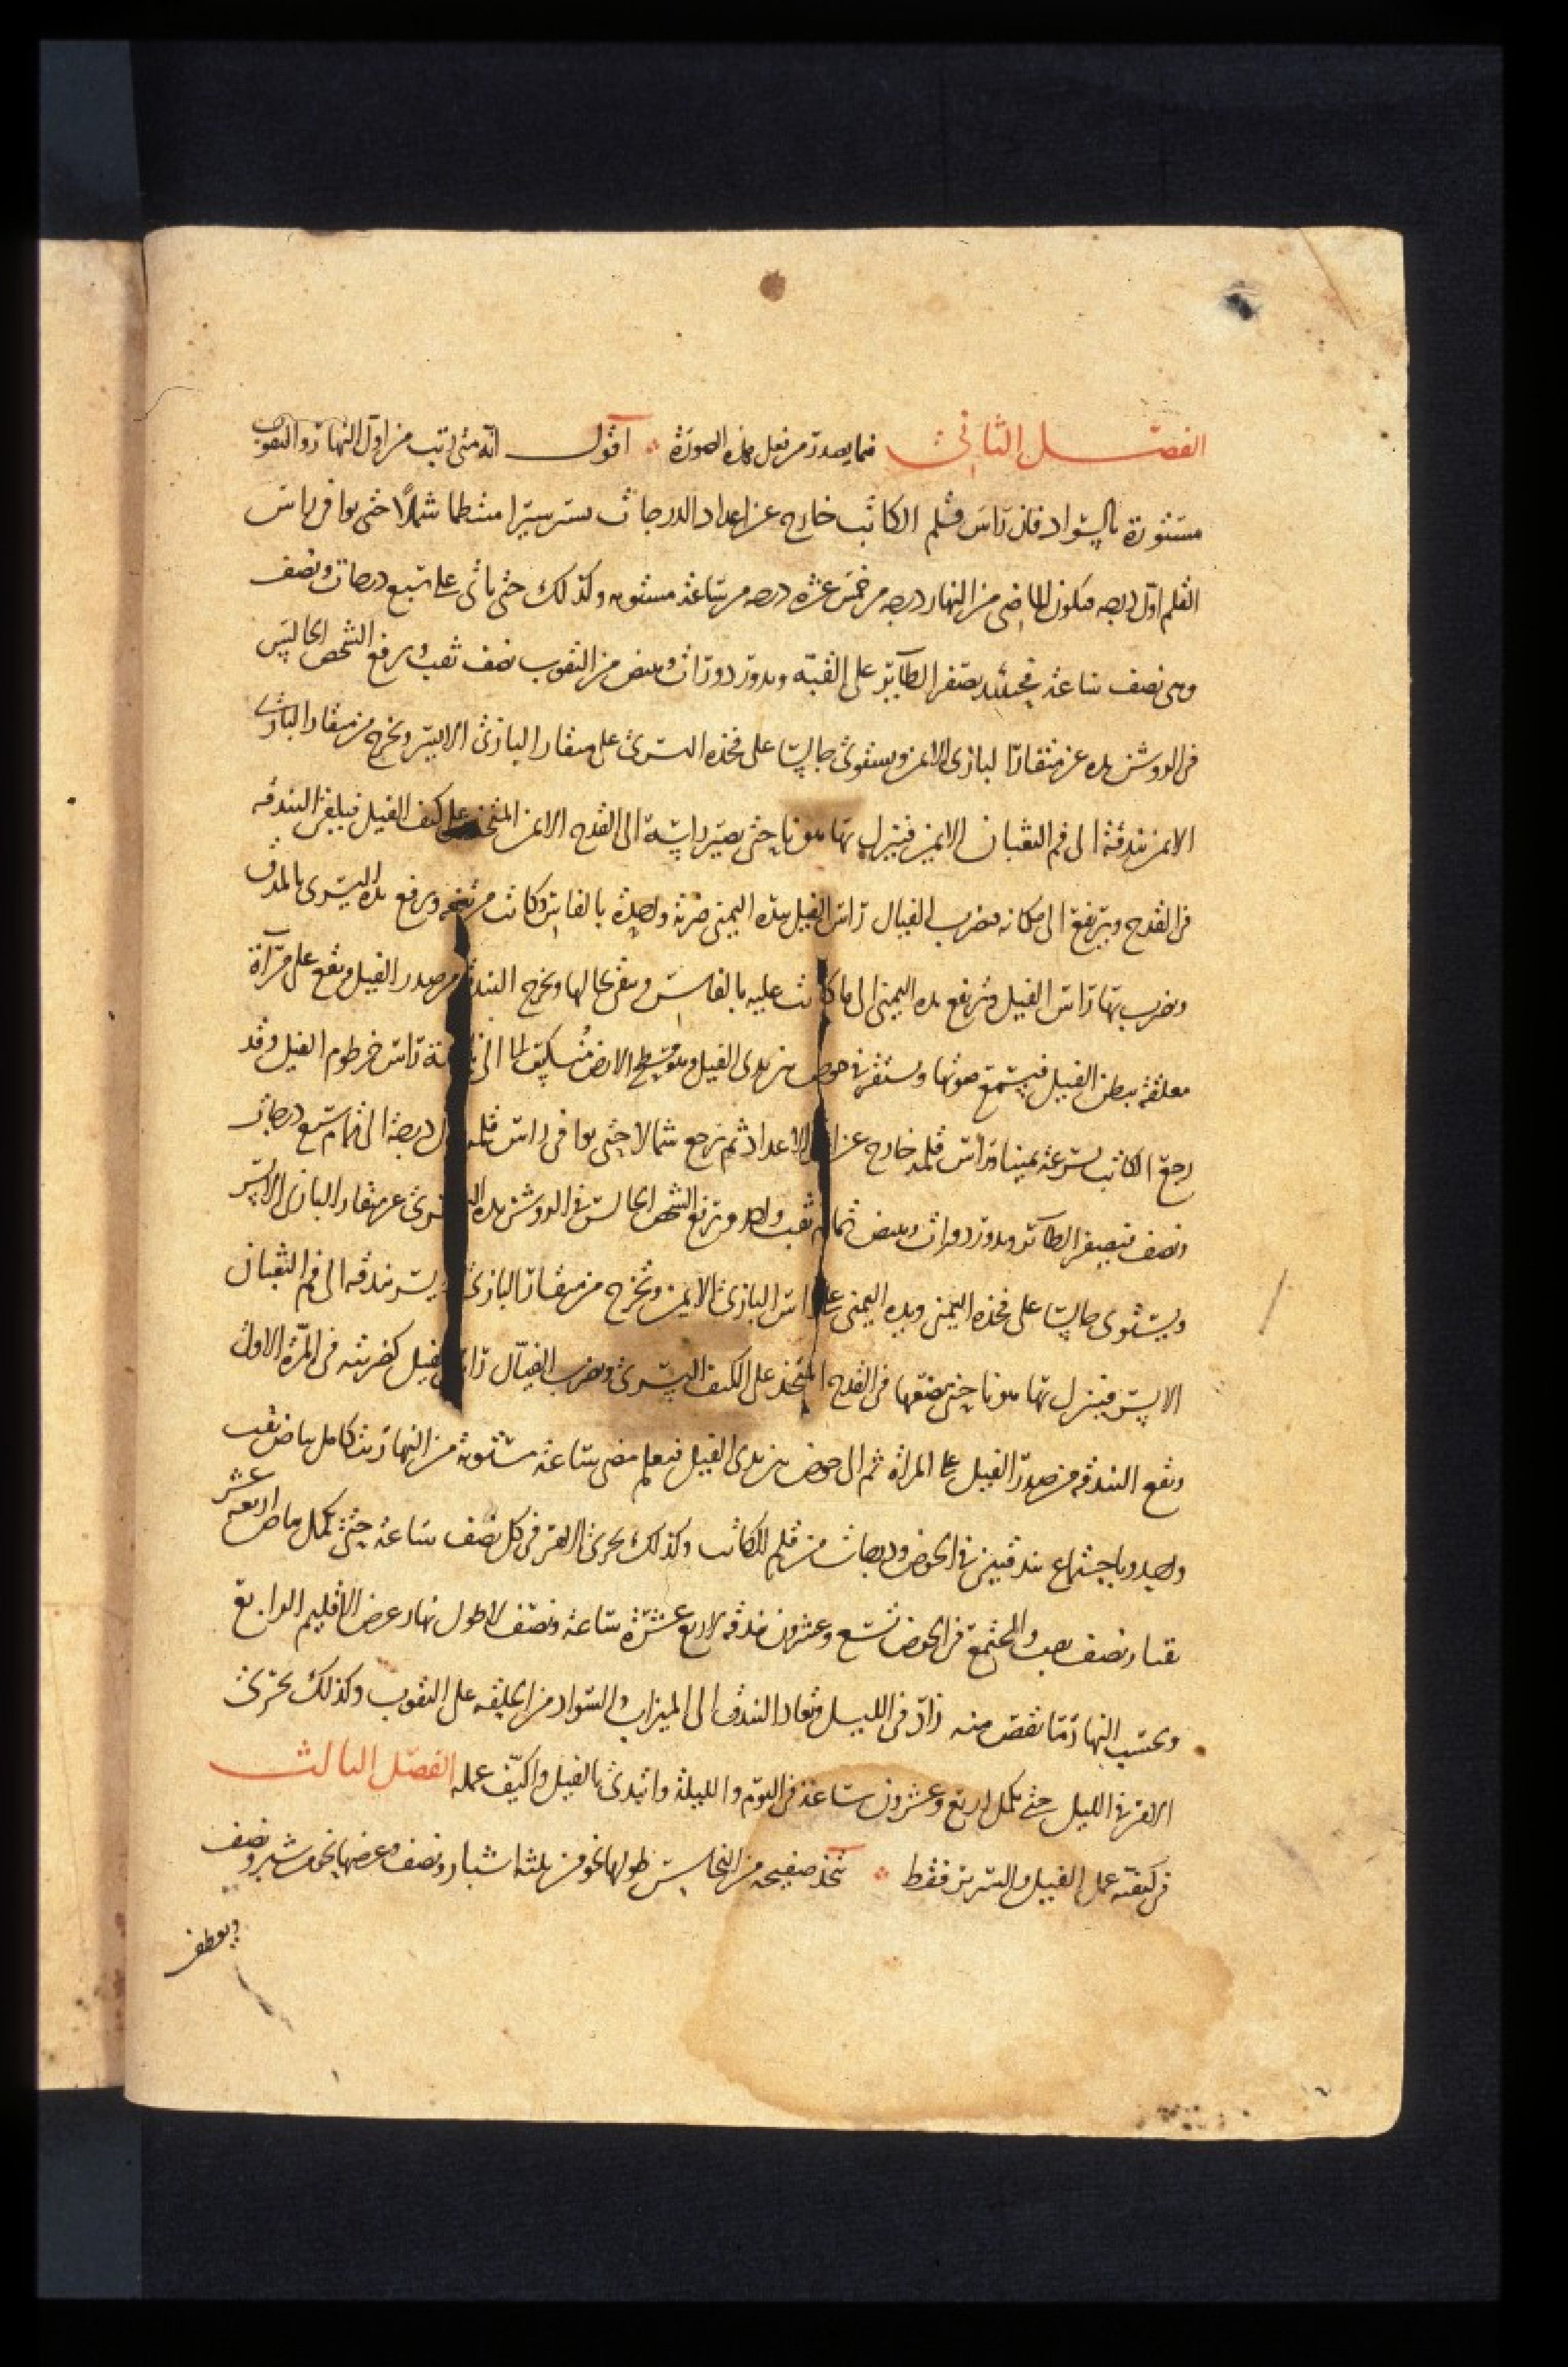 الفصل الثاني فيما يصدر من فعل هذه الصورة اقول انه متى رتب من اول النهار والثقوب
مستورة بالسواد فان راس قلم الكاتب خارج عن اعداد الدرجات يسير سيرا منتظما شمالا حتى يوافي راس
القلم اول درجه فيكون الماضي من النهار درجه من خمس عشره درجه من ساعة مستويه وكذلك حتى ياتي على سبع درجات ونصف
وهي نصف ساعة فحينئذ يصفر الطائر على القبة ويدور دورات ويبيض من الثقوب نصف ثقب ويرفع الشخص الجالس
في الروشن يده عن منقار البازي الايمن ويستوي جالسا على فخذه اليسرى على منقار البازي الايسر ويخرج من منقار البازي
الايمن بندقة الى فم الثعبان الايمن فينزل بها هونا حتى يصير راسه الى القدح الايمن المتخذ على كتف الفيل فيلقي البندقه
في القدح ويرتفع الى مكانه فيضرب الفيال راس الفيل بيده اليمنى ضربة واحدة بالفاس وكانت مرتفعه ويرفع يده اليسرى بالمدق
ويضرب بها راس الفيل وترفع يده اليمنى الى ما كانت عليه بالفاس وتبقى بحالها وتخرج البندقة من صدر الفيل وتقع على مرآة
معلقة ببطن الفيل فيسمع صوتها وتستقر في حوض بين يدي الفيل وهو الارض راس خرطوم الفيل وقد
رجع الكاتب بسرعة يمينا وراس قلمه خارج عن اول الاعداد ثم يرجع شمالا حتى يوافي راس قلمه اول درجة الى تمام سبع درجات
ونصف فيصفر الطائر ويدور دورات ويبيض تمام ثقب واحد ويرفع الشخص الجالس في الروشن يده اليسرى عن منقار البازي الايسر
ويستوي جالسا على فخذه اليمنى ويده اليمنى على راس البازي الايمن وتخرج من منقار البازي الايسر بندقه الى فم الثعبان
الايسر فينزل بها هونا حتى يضعها في القدح المتخذ على الكتف اليسرى ويضرب الفيال راس الفيل كضربته في المرة الاولى
وتقع البندقه من صدر الفيل على المراة ثم الى حوض بين يدي الفيل فيعلم مضي ساعة مستويه من النهار بكامل بياض ثقب
واحد وباجتماع بندقتين في الحوض ودرجات من قلم الكاتب وكذلك يجري الامر في كل نصف ساعة حتى يكمل بياض اربعه عشر
ثقبا ونصف ثقب والمجتمع في الحوض تسع وعشرون بندقه لاربع عشرة ساعة ونصف لاطول نهار عرض الاقليم الرابع
وبحسب النهار مما نقص منه زاد في الليل وتعاد البندق الى الميزاب والسواد من الحلقه على الثقوب وكذلك يجري
الامر في الليل حتى يكمل اربع وعشرون ساعة في اليوم والليلة وابتدئ بالفيل واكيف عمله الفصل الثالث
في كيفية عمل الفيل والسرير فقط تتخذ صفيحه من النحاس طولها نحو من ثلثة اشبار ونصف وعرضها نحو من شبر ونصف
ويعطف